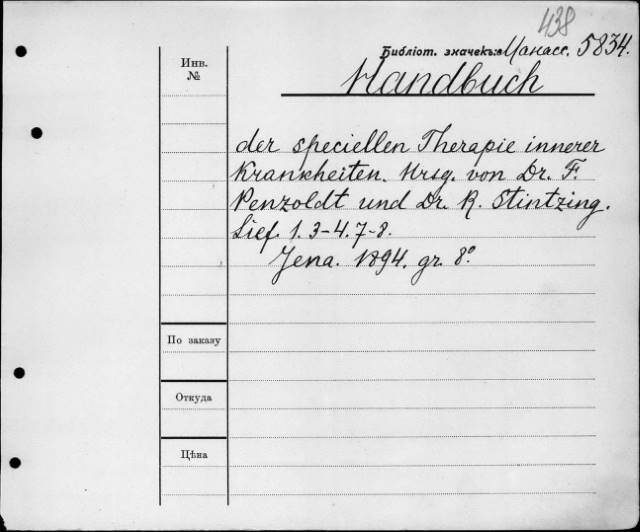 438
Библіот. значекъ: Манасс. 5834.
Инв.
№
Handbuch
der speciellen Therapie innerer
Krankheiten. Hrsg. von Dr. F.
Penzoldt und Dr. R. Stintzing.
Lief. 1. 3-4. 7-8.
Jena. 1894. gr. 8°.
По заказу
Откуда
Цѣна